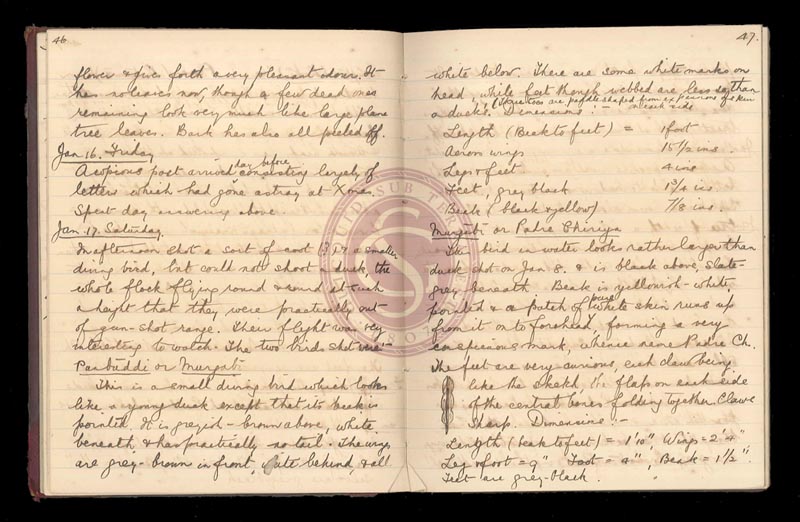 46
flower & gives forth a very pleasant odour. It
has no leaves now, though a few dead ones
remaining look very much like large plane
tree leaves. Bark has also all peeled off.
Jan 16. Friday
day before
A copious post arrived consisting largely of
letters which had gone astray at Xmas.
Spent day answering above.
Jan. 17. Saturday.
In afternoon shot a sort of coot & a smaller
diving bird, but could not shoot a duck, the
whole flock flying round & round at such
a height that they were practically out
of gun-shot range. Their flight was very
interesting to watch. The two birds shot were
Panbuddi or Murgabi
This is a small diving bird which looks
like a young duck except that its beak is
pointed. It is greyish-brown above, white
beneath, & has practically no tail. The wings
are grey-brown in front, white behind, & all
47.
white below. There are some white marks on
head, while feet though webbed are less so than
a duck's. (Toes are paddle shaped from expansions of skin
on each side
Dimensions:-
Length (Beak to feet) = 1 foot
Across wings 15 1/2 ins.
Leg & feet 4 ins
Feet, grey black 1 3/4 ins
Beak (black & yellow) 7/8 ins.
Murgabi or Padre Chiriya
This bird in water looks rather larger than
duck shot on Jan 8. & is black above, slate-
grey beneath. Beak is yellowish-white,
pure
pointed & a patch of white skin runs up
from it on to forehead, forming a very
conspicuous mark, whence name Padre Ch.
The feet are very curious, each claw being
like the sketch, the flaps on each side
of the central bones folding together. Claws
sharp. Dimensions:-
Length (beak to feet) = 1'10" Wings = 2'4"
Leg & foot = 9" Foot = 4", Beak = 1 1/2".
Feet are grey-black.
SUB